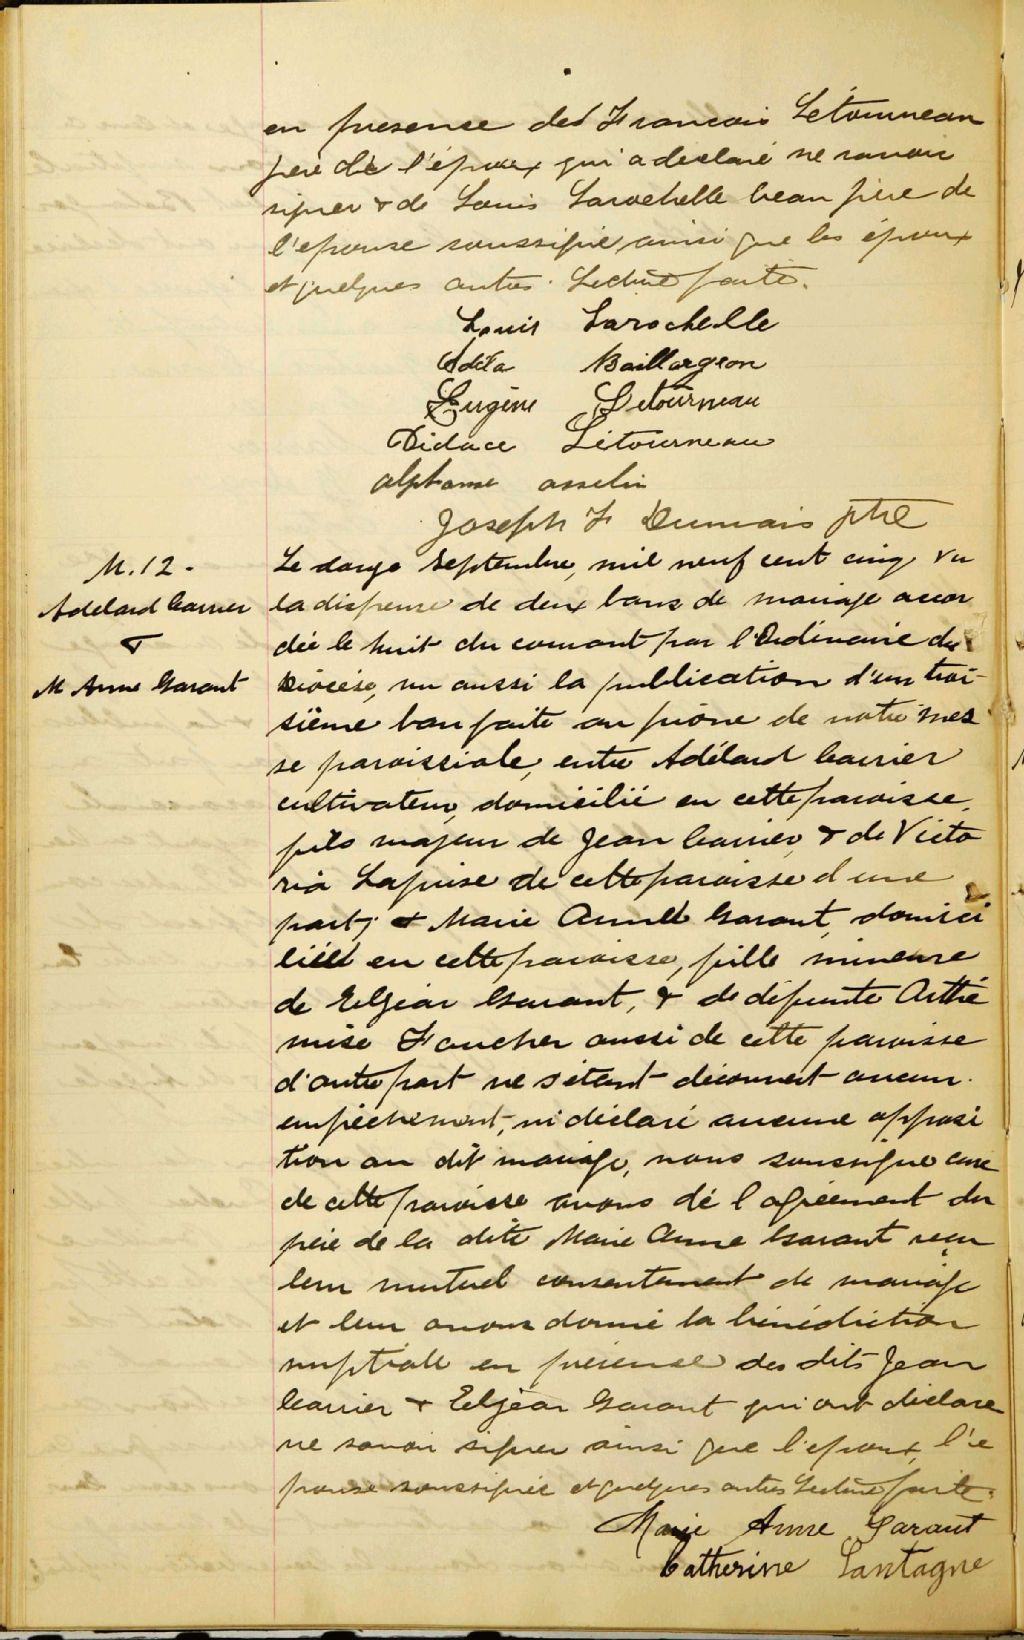 en presence des Francois Létourneau
pere de l'époux qui a declaré ne savoir
signer & de Louis Larochelle beau pere de
l'epouse soussigné, ainsi que les époux
et quelques autres. Lecture faite.
Louis Larochelle
Odila Baillargeon
Eugène Létourneau
Didace Létourneau
alphonse asselin
Joseph F Dumais ptre
M. 12.
Adelard Carrier
&
M Anne Garant
Le douze Septembre, mil neuf cent cinq vu
la dispense de deux bans de mariage accor
dée le huit du courant par l'Ordinaire du
Diocèse, vu aussi la publication d'un troi-
sième ban faite au prône de notre mes
se paroissiale, entre Adélard Carrier
cultivateur, domicilié en cette paroisse,
fils majeur de Jean Carrier, & de Victo
ria Laprise de cette paroisse d'une
part; & Marie Anne Garant, domici
liée en cette paroisse, fille mineure
de Elzéar Garant, & de défunte Arthé
mise Faucher aussi de cette paroisse
d'autre part ne s'étant découvert aucun
empêchement, ni déclaré aucune opposi
tion au dit mariage, nous soussigné curé
de cette paroisse avons de l'agrément du
père de la dite Marie Anne Garant reçu
leur mutuel consentement de mariage
et leur avons donné la bénédiction
nuptiale en présence des dits Jean
Carrier & Elzéar Garant qui ont déclaré
ne savoir signer ainsi que l'epoux, l'é
pouse soussignée et quelques autres Lecture faite.
Marie Anne Garant
Catherine Lantagne